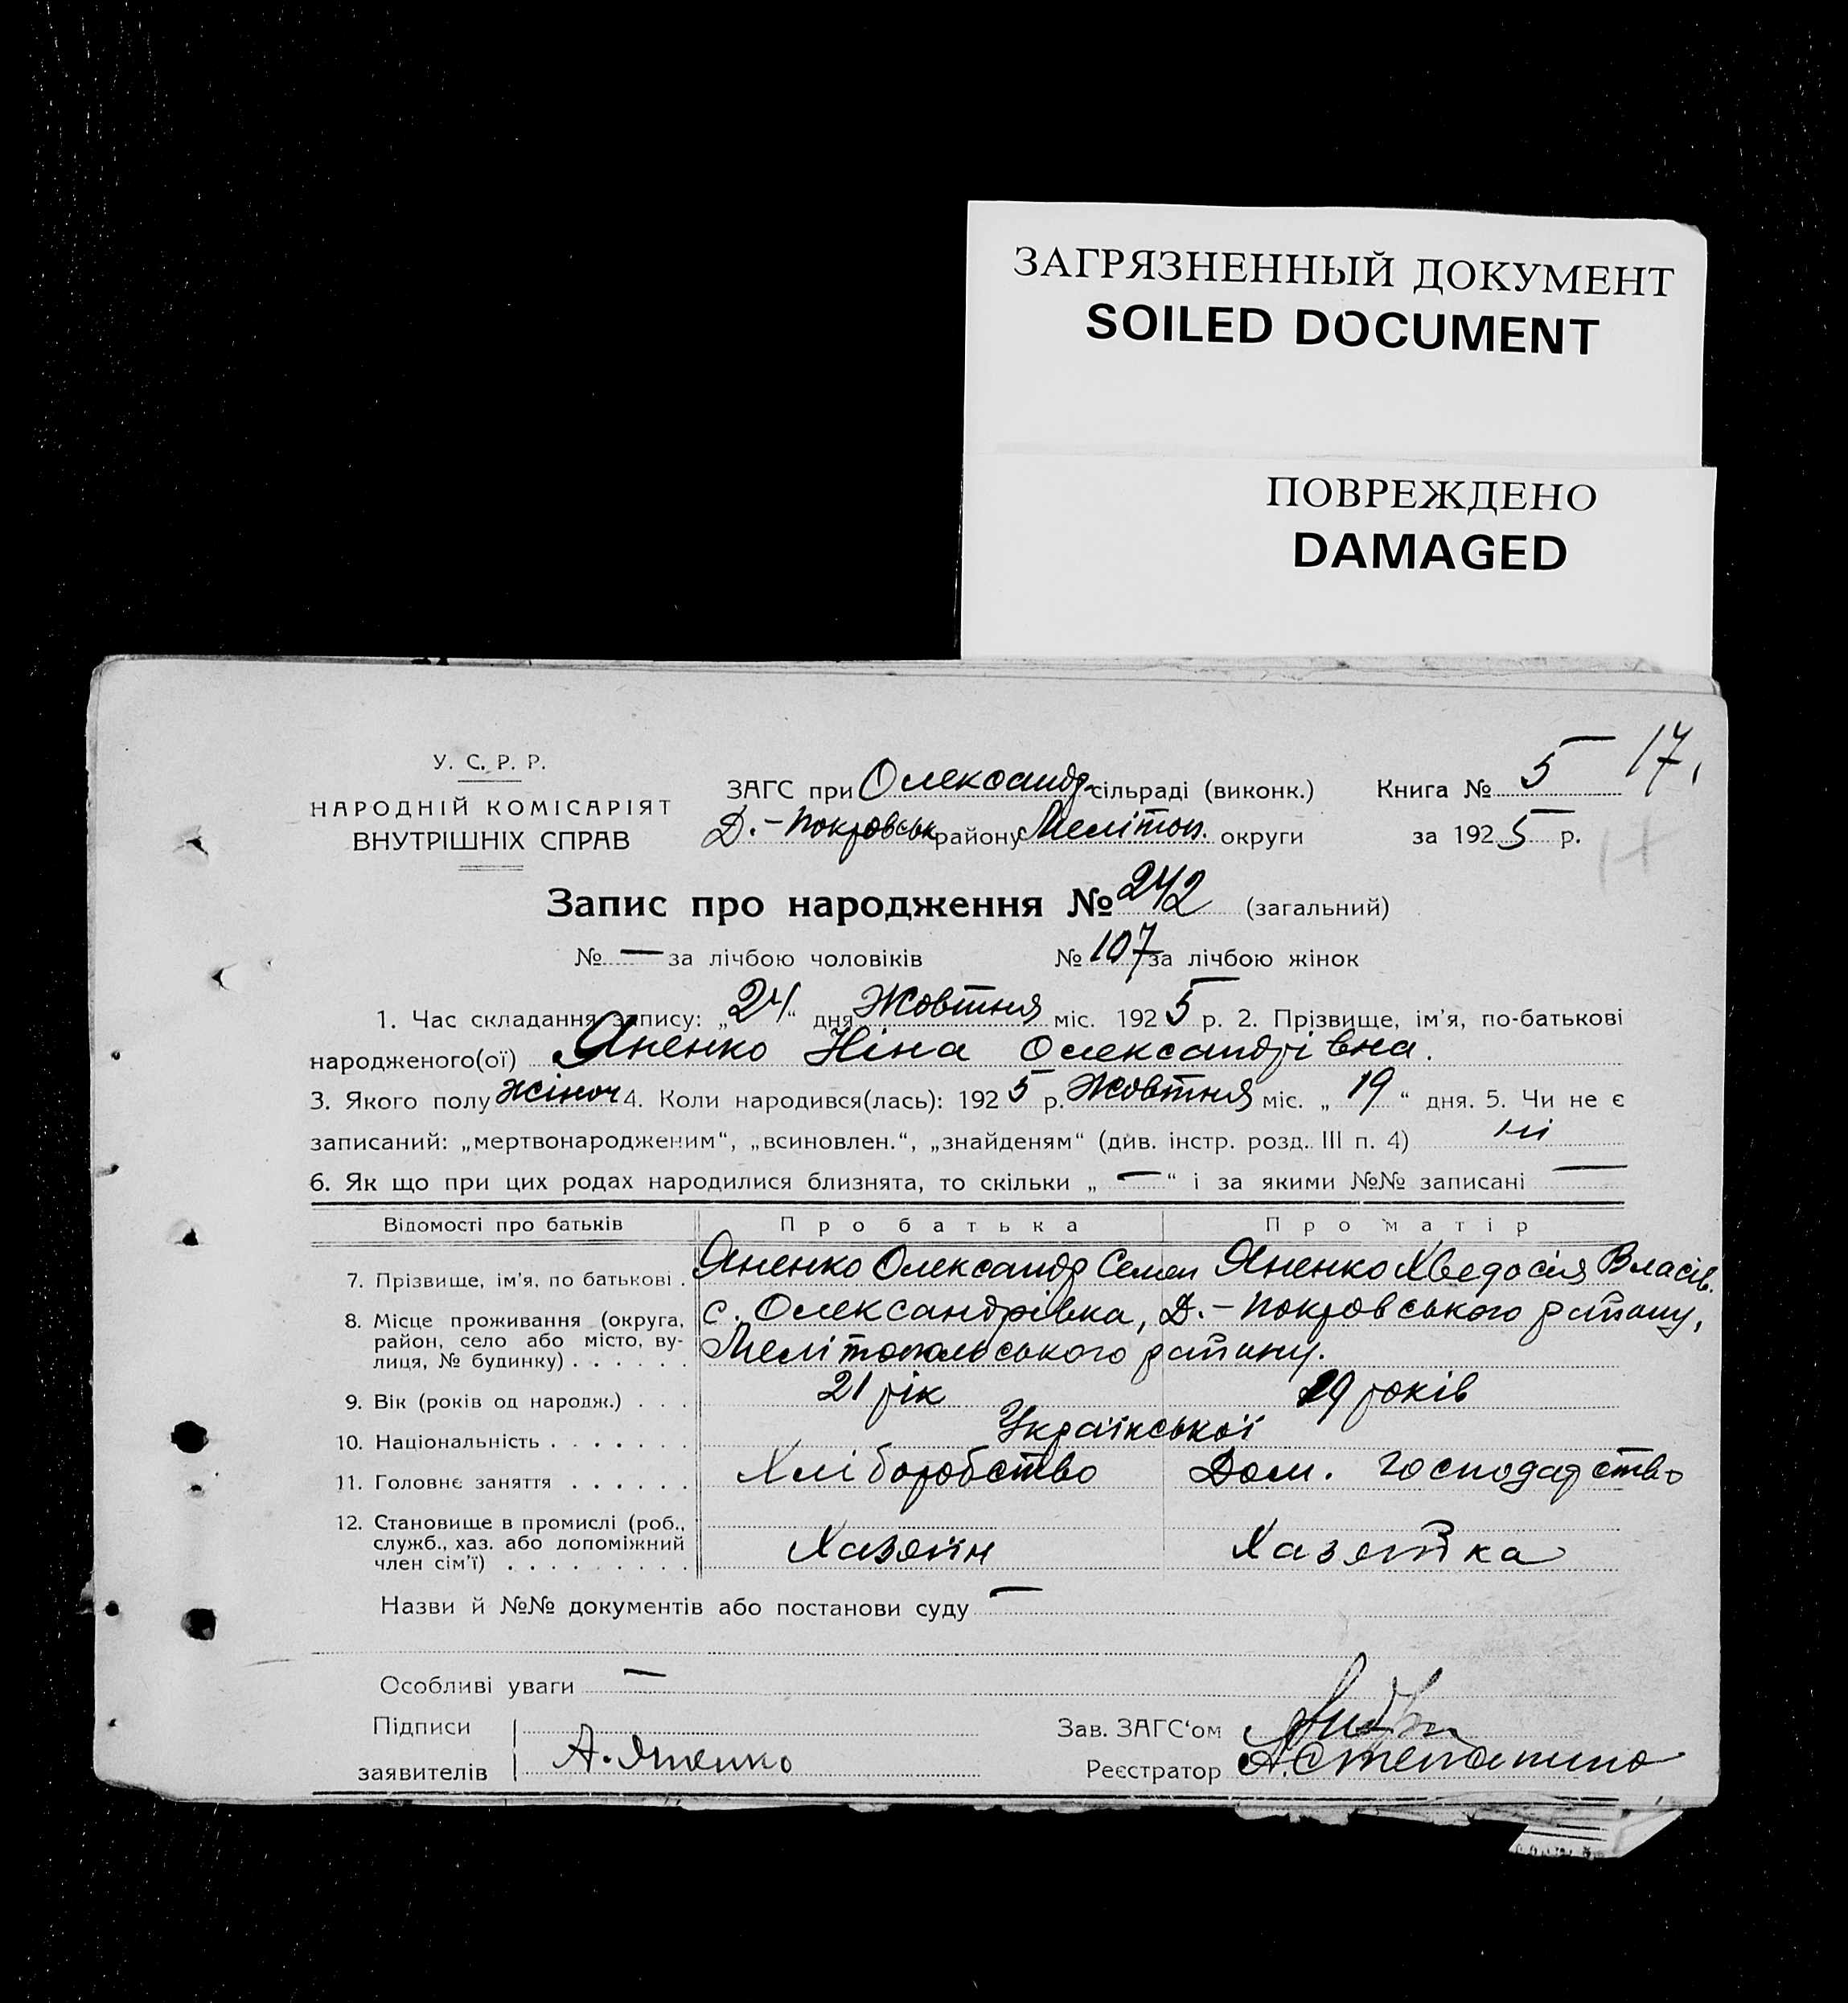 ЗАГРЯЗНЕННЫЙ ДОКУМЕНТ
SOILED DOCUMENT
ПОВРЕЖДЕНО
DAMAGED
17.
У. С. Р. Р.
НАРОДНІЙ КОМІСАРІЯТ
ВНУТРІШНІХ СПРАВ
ЗАГС при Олександр. сільраді (виконк.) Книга № 5
Д.-Покровськ району Мелітоп. округи за 1925 р.
Запис про народження № 242 (загальний)
№ — за лічбою чоловіків № 107 за лічбою жінок
1. Час складання запису: „24“ дня Жовтня міс. 1925 р. 2. Прізвище, ім'я, по-батькові
народженого(ої) Яненко Ніна Олександрівна.
3. Якого полу жіноч 4. Коли народився(лась): 1925 р. Жовтня міс. „19“ дня. 5. Чи не є
записаний: „мертвонародженим“, „всиновлен.“, „знайденям“ (див. інстр. розд. III п. 4) ні
6. Як що при цих родах народилися близнята, то скільки „—“ і за якими №№ записані —
Відомості про батьків Про батька Про матір
7. Прізвище, ім'я, по батькові . Яненко Олександр Семен Яненко Хведосія Власів.
8. Місце проживання (округа, район, село або місто, вулиця, № будинку) . . . . . . с. Олександрівка, Д.-Покровського району,
Мелітопольського району.
9. Вік (років од народж.) . . . 21 рік 29 років
10. Національність . . . . . . . Української
11. Головнє заняття . . . . . . Хліборобство Дом. господарство
12. Становище в промислі (роб., служб., хаз. або допоміжний член сім'ї) . . . . . . . . . Хазяїн Хазяйка
Назви й №№ документів або постанови суду —
Особливі уваги —
Підписи Зав. ЗАГС'ом
заявителів А. Яненко Реєстратор